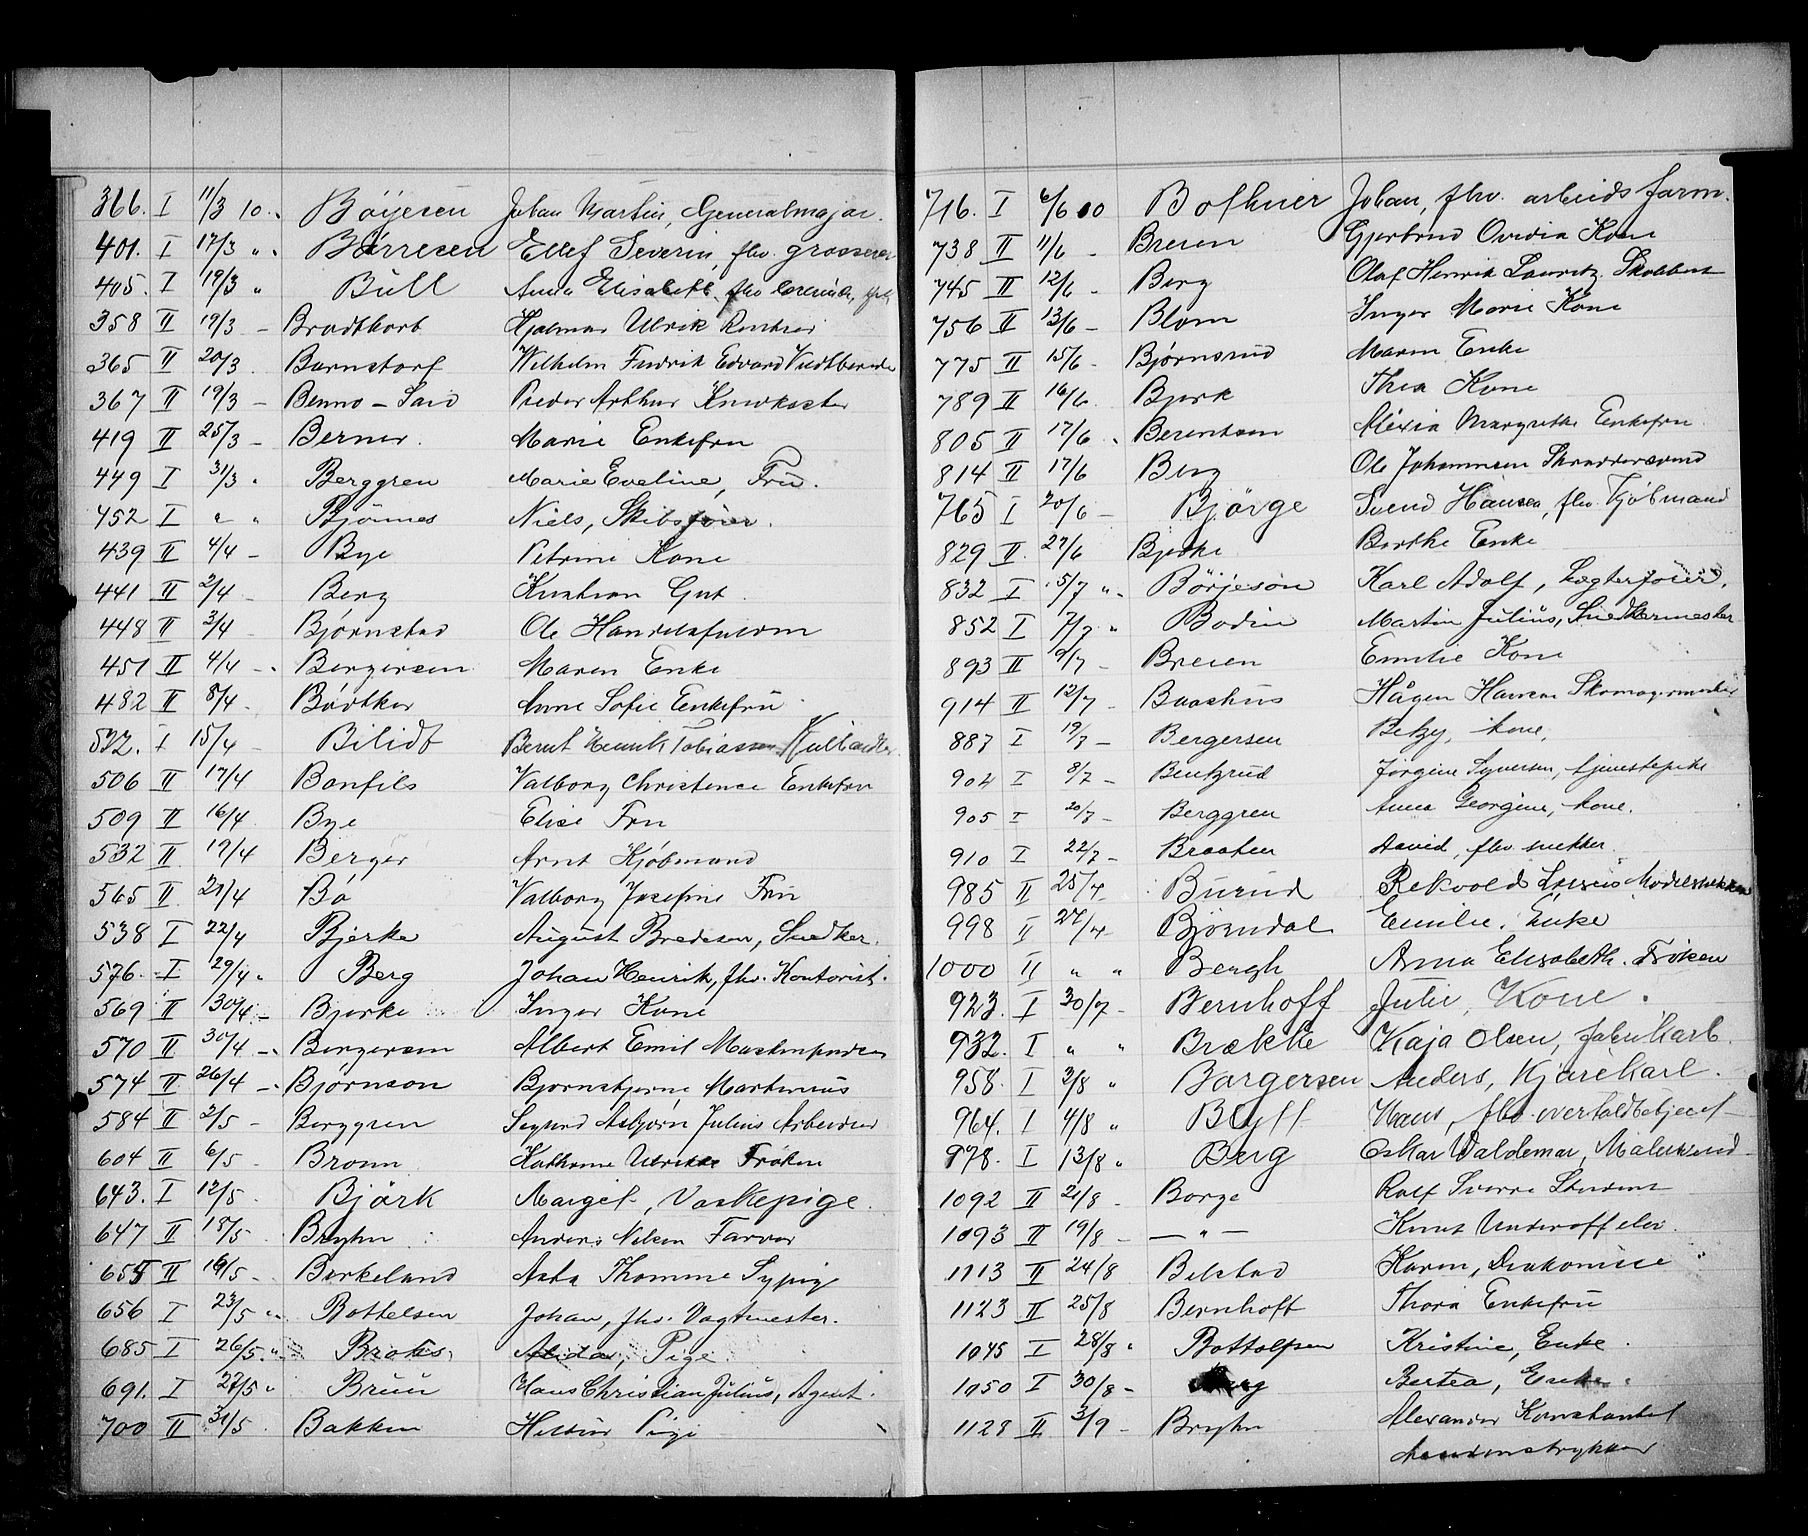 366. I 11/3 10. Böyesen Johan Martin, Generalmajor.
401. I 17/3 " Børresen Ellef Severin, fhv. grosserer
405. I 19/3 " Bull Anna Elisabeth, fhv.
358 II 19/3 - Bradthorb Hjalmar Ulrik Rentier
365 II 20/3 . Barnstorf Wilhelm Fredrik Edvard
367 II 19/3 - Benno - Said Peder Arthur
419 II 25/3 - Berner. Marie Enkefru
449 I 31/3 " Berggren Marie Eveline, Fru.
452 I " " Bjönnes Niels, Skibsfører.
439 II 4/4 - Bye Petrine Kone
441 II 2/4 - Berg Kristian Gut.
448 II 3/4 - Bjørnstad Ole Handelsfuldm
451 II 4/4 - Bergersen Maren Enke
482 II 8/4 - Bødtker Anne Sofie Enkefru
522. I 15/4 - Bilidt Bernt Henrik Tobiassen, Kulhandler
506 II 17/4 Bonfils Valborg Christence Enkefru
509 II 16/4 Bye Elise Fru
532 II 19/4 Berger Arnt Kjøbmand
565 II 21/4 Bø Valborg Josefine Fru
538 I 22/4 Bjerke August Bredesen, Snedker.
576. I 29/4 " Berg Johan Henrik, fhv. Kontorist.
569 II 30/4 - Bjerke Inger Kone
570 II 30/4 - Bergersen Albert Emil
574 II 26/4 - Bjørnson Bjørnstjerne Martinius
584 II 2/5 - Berggren Sigurd Asbjørn Julius Arbeider
604 II 6/5 - Bronn Kathrine Ulrikke Frøken
643. I 12/5 . Björk Margit, Vaskepige.
647 II 18/5 . Bryhn Anders Nilsen Farver
655 II 16/5 - Berkeland Asta Thomine Sypig
656 I 23/5 " Bottelsen Johan, fhv. Vagtmester.
685 I 26/5 " Broks Alida, Pige
691. I 27/5 " Bruu Hans Christian Julius, Agent.
700 II 31/5 . Bakken Pige
716. I 6/6 10 Bothner Johan, fhv. arbeidsform.
738 II 11/6 - Breien Gjertrud Ovidia Kone
745 II 12/6 - Berg Olaf Henrik Lauritz
756 II 13/6 - Blom Inger Marie Kone
775 II 15/6 - Bjørnsrud Maren Enke
789 II 16/6 . Bjerk Thea Kone
805 II 17/6 . Berentsen Alexia Margrethe Enkefru
814 II 17/6 Berg Ole Johannesen Skræddersvend
765 I 20/6 - Bjørge Svend Hansen, fhv. Kjøbmand
829 II. 27/6 Bjerke Berthe Enke
832 I 5/7 " Börjeson Karl Adolf,
852 I 7/7 " Bodin Martin Julius, Snedkermester
893 II 9/7 - Breien Emilie Kone
914 II 12/7 - Baashus Hågen Hansen Skomagermester
887 I 19/7 - Bergersen Betzy, kone.
902 I 8/7 - Bentzrud Jörgine Syversen, tjenestepike
905 I 20/7 - Berggren Anna Georgine, kone.
910 I 22/7 - Braaten David, fhv. snekker.
985 II 25/7 Burud Rekvold
998 II 27/7 Bjørndal Emilie. Enke
1000 II " " Bergh Anna Elisabeth. Frøken
923. I 30/7 - Bernhoff Julie, Kone.
932. I " " Brække Kaja Olsen,
958. I 3/8 " Borgersen Anders, Kjørekarl.
964. I 4/8 " Bytt Hans, fhv.
978. I 13/8 " Berg Oskar Valdemar, Malersvend
1092 II 21/8 - Borge Rolf Sverre Student
1093 II 19/8 - — " — Knut Underoff.elev.
1113 II 24/8 - Belstad Karen, Diakonisse
1123 II 25/8 Bernhoft Thora Enkefru
1045 I 28/8 " Bottolfsen Kristine, Enke.
1050 I 30/8 - Berg Bertea, Enke.
1128 II 3/9 - Bryhn Alexander